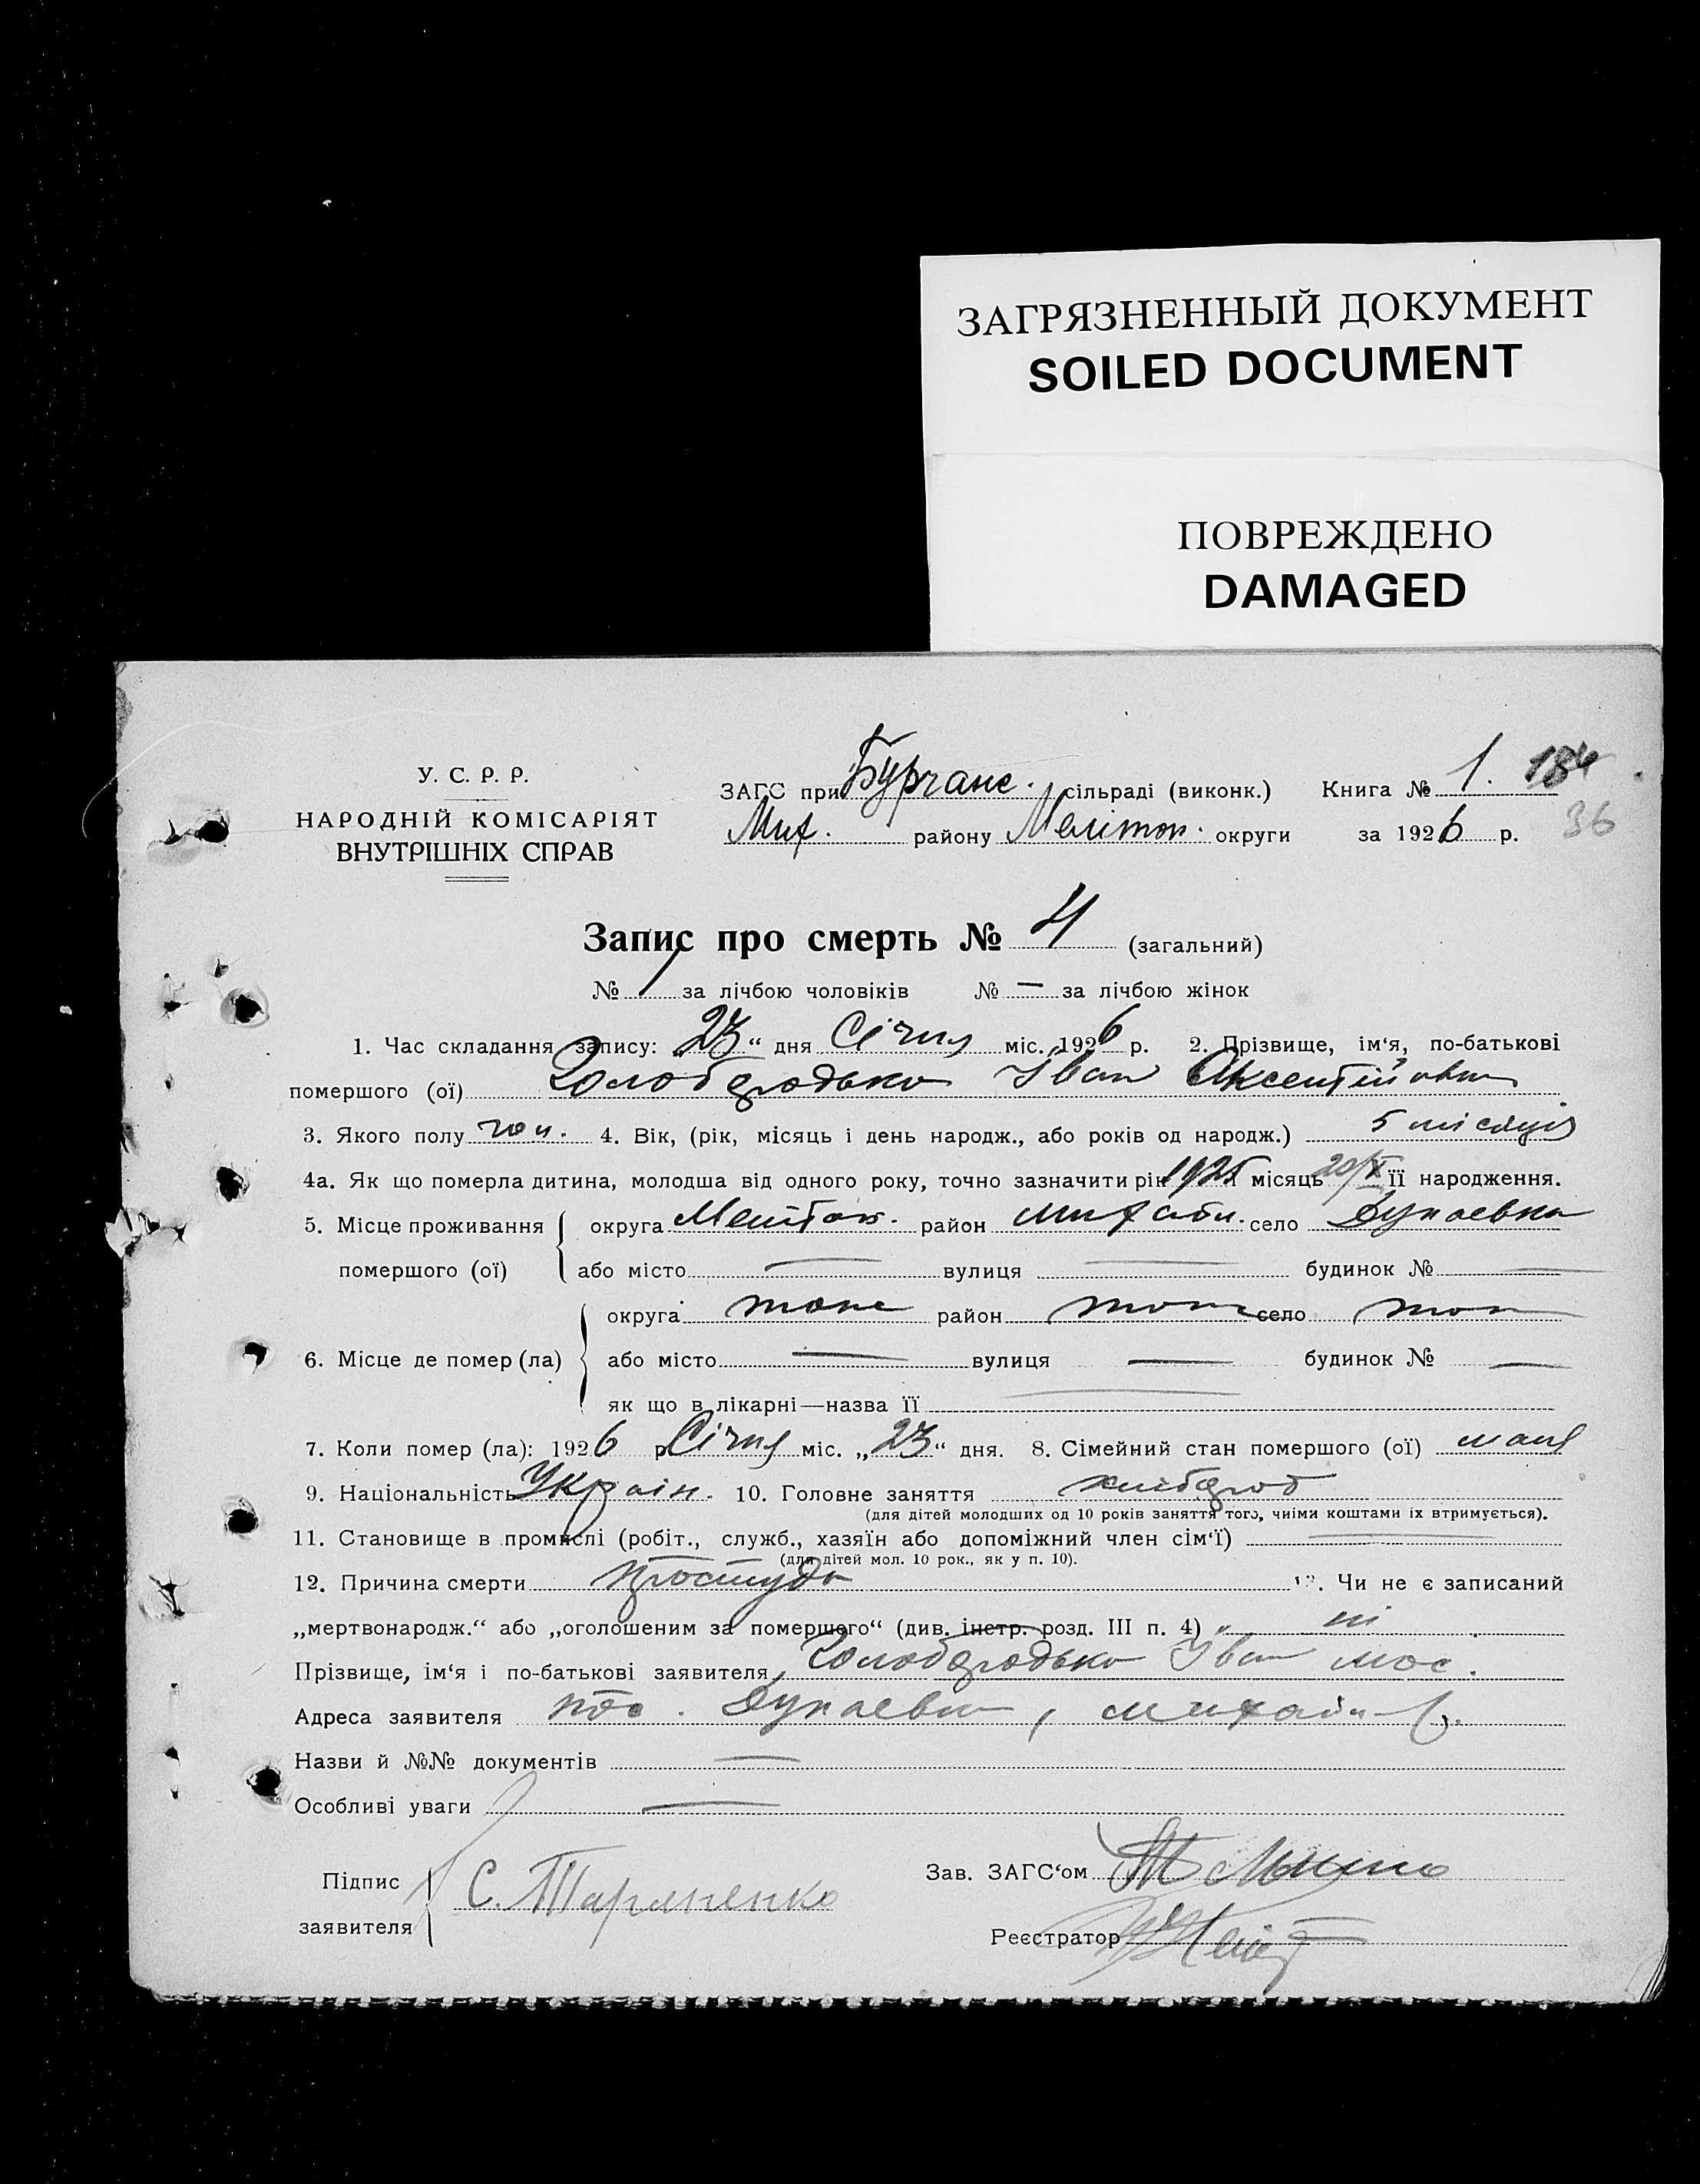 ЗАГРЯЗНЕННЫЙ ДОКУМЕНТ
SOILED DOCUMENT
ПОВРЕЖДЕНО
DAMAGED
У. С. Р. Р.
НАРОДНІЙ КОМІСАРІЯТ
ВНУТРІШНІХ СПРАВ
ЗАГС при Бурчанс. сільраді (виконк.) Книга № 1. 184
Мих. району Мелітоп. округи за 1926 р. 36
Запис про смерть № 4 (загальний)
№ 1 за лічбою чоловіків № — за лічбою жінок
1. Час складання запису: „23“ дня Січня міс. 1926 р. 2. Прізвище, ім‘я, по-батькові
помершого (ої) Голобородько Іван Аксентійович
3. Якого полу чол. 4. Вік, (рік, місяць і день народж., або років од народж.) 5 місяців
4а. Як що померла дитина, молодша від одного року, точно зазначити рік 1925 місяць 20/X її народження.
5. Місце проживання округа Мелітоп. район Михайл. село Дунаевка
помершого (ої) або місто — вулиця — будинок № —
округа тоже район тоже село тоже
6. Місце де помер (ла) або місто — вулиця — будинок № —
як що в лікарні—назва її —
7. Коли помер (ла): 1926 р. Січня міс. „23“ дня. 8. Сімейний стан помершого (ої)
9. Національність Україн. 10. Головне заняття хлібороб
(для дітей молодших од 10 років заняття того, чиїми коштами їх втримується).
11. Становище в промислі (робіт., служб., хазяїн або допоміжний член сім‘ї) —
(для дітей мол. 10 рок., як у п. 10).
12. Причина смерти простуда 12. Чи не є записаний
„мертвонародж.“ або „оголошеним за помершого“ (див. інстр. розд. III п. 4) ні
Прізвище, ім‘я і по-батькові заявителя Голобородько Іван
Адреса заявителя пос. Дунаевка, Михайл. р.
Назви й №№ документів —
Особливі уваги —
Підпис
заявителя С. Тараненко
Зав. ЗАГС‘ом
Реєстратор